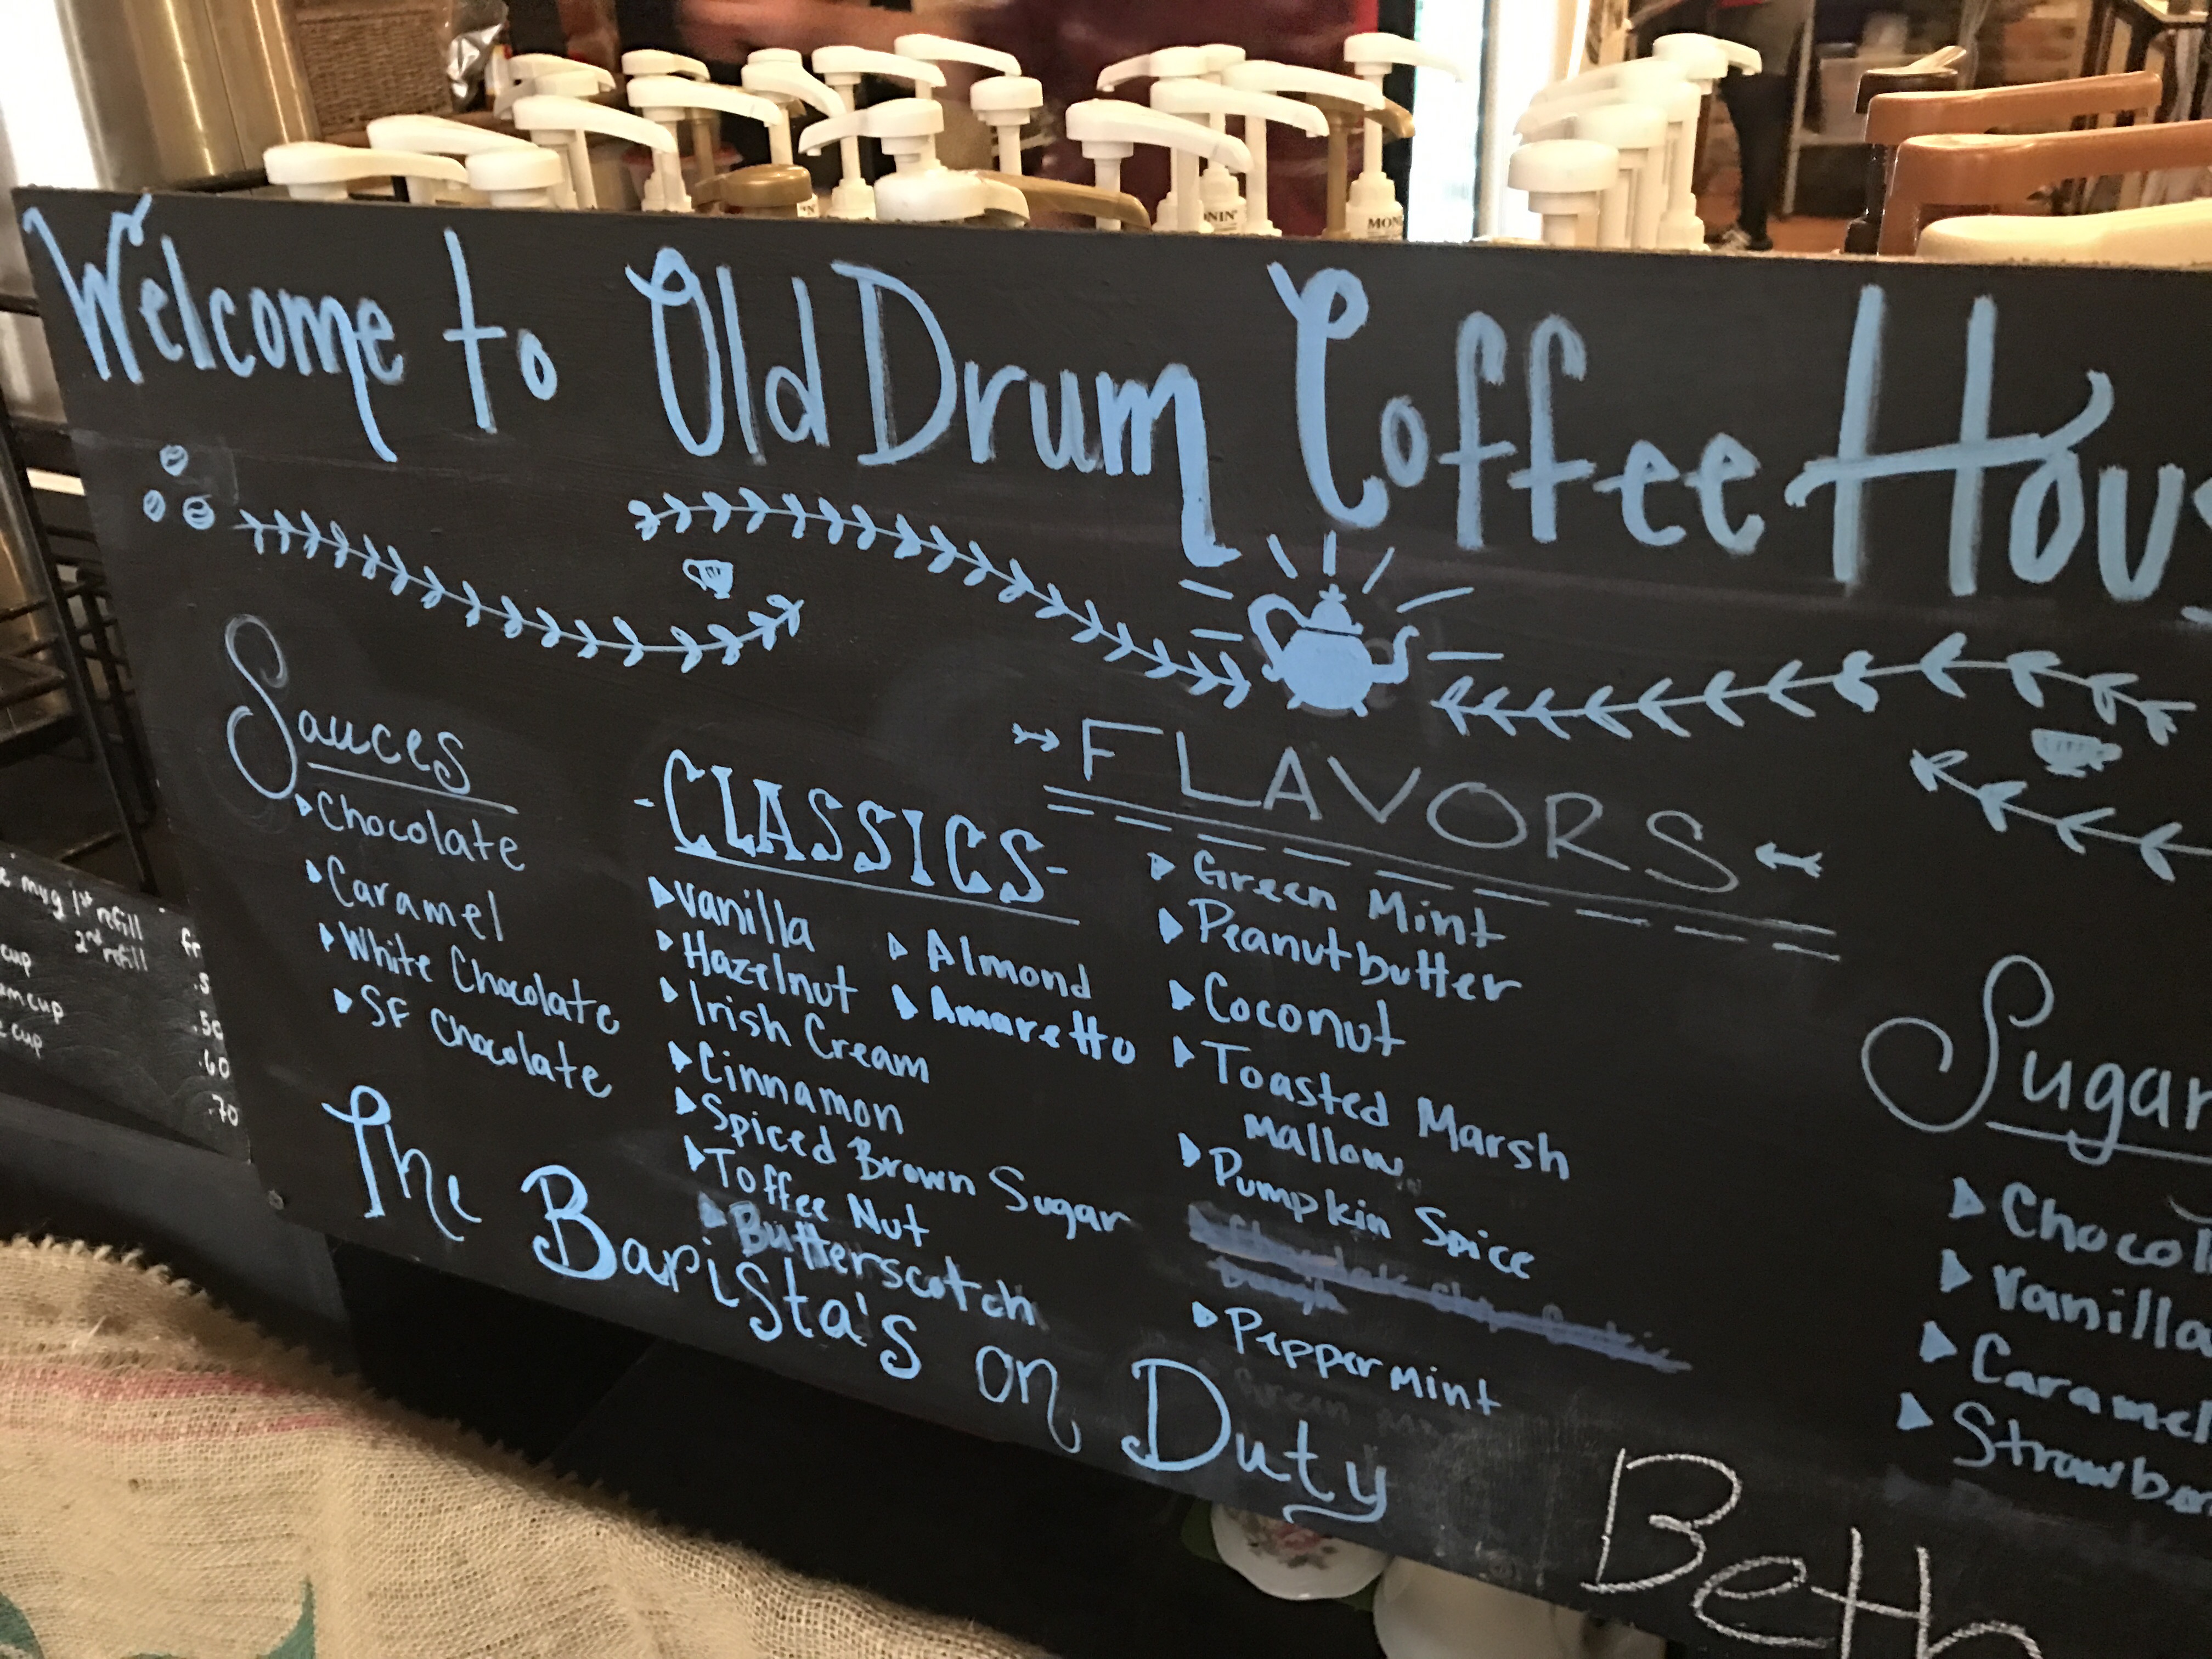 Welcome to Old Drum Coffee Hous
Sauces
Chocolate
Caramel
White Chocolate
SF Chocolate
-CLASSICS-
Vanilla
Hazelnut
Irish Cream
Cinnamon
Spiced Brown Sugar
Toffee Nut
Butterscotch
Almond
Amaretto
FLAVORS
Green Mint
Peanutbutter
Coconut
Toasted Marsh
mallow
Pumpkin Spice
Peppermint
Sugar
Chocol
Vanilla
Caramel
Strawber
The Barista's on Duty
Beth
e mug 1st refill fr
2nd refill .5
cup .50
cup .60
cup .70
MONIN
MON